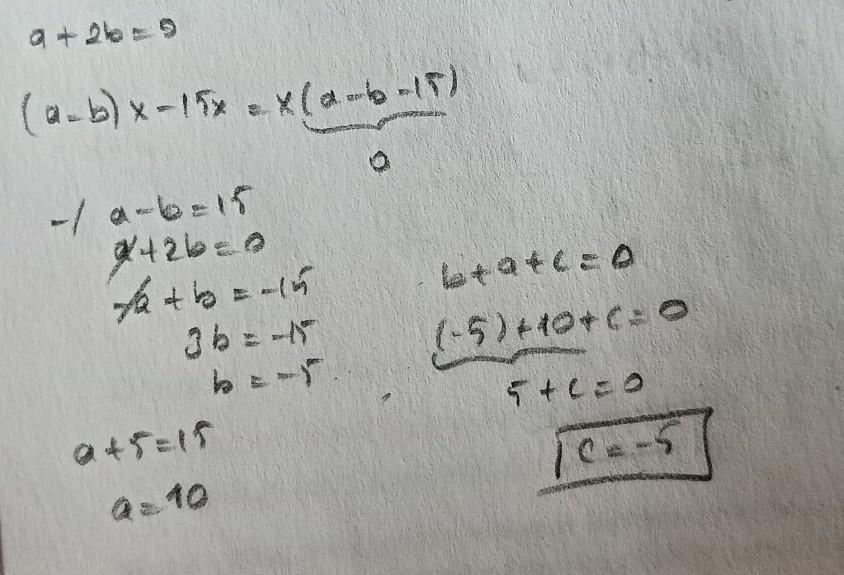 a + 2b = 0
(a-b)x - 15x = x(a-b-15)
0
-/ a-b = 15
a+2b = 0
-a + b = -15
3b = -15
b = -5
a+5=15
a=10
b+a+c = 0
(-5)+10+c = 0
5+c=0
c=-5